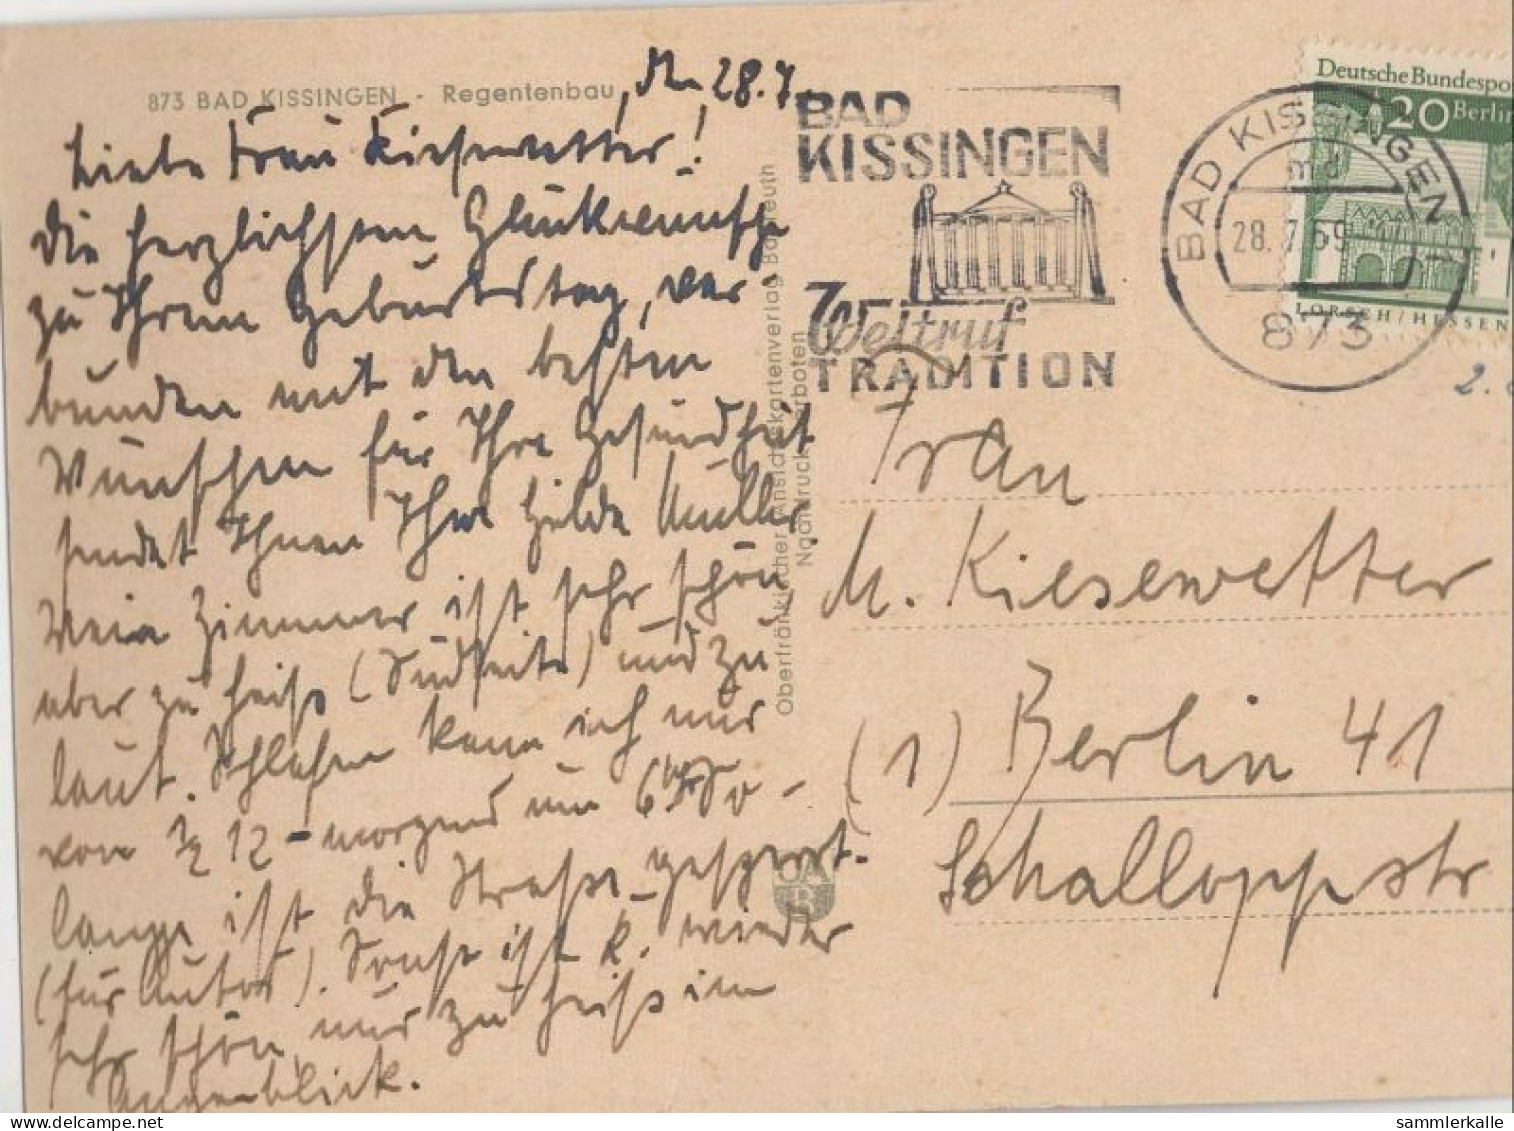 873 BAD KISSINGEN - Regentenbau
, den 28.7.
Liebe Frau Kiesewetter!
die herzlichsten Glückwünsche
zu Ihrem Geburtstag, ver
bunden mit den besten
Wünschen für Ihre Gesundheit
sendet Ihnen Ihre Hilde Müller.
Mein Zimmer ist sehr schön
aber zu heiß (Südseite) und zu
laut. Schlafen kann ich nur
von 1/2 12 - morgens um 6 So-
lange ist die Straße gesperrt.
(für Autos). Sonst ist K. wieder
sehr schön nur zu heiß im
Augenblick.
Oberfränkischer Ansichtskartenverlag Bayreuth
Nachdruck verboten
OAB
BAD
KISSINGEN
Weltruf
TRADITION
BAD KISSINGEN 1
md
28.7.69
873
Deutsche Bundespo
20 Berlin
LORSCH/HESSEN
2.
Frau
M. Kiesewetter
(1) Berlin 41
Schalloppstr
sammlerkalle